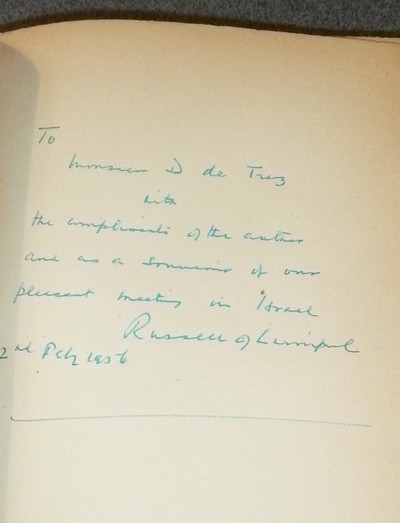 To
Monsieur D de Trez
with
the compliments of the author
and as a souvenir of our
pleasant meeting in Israel
Russell of Liverpool
2nd Feb 1956